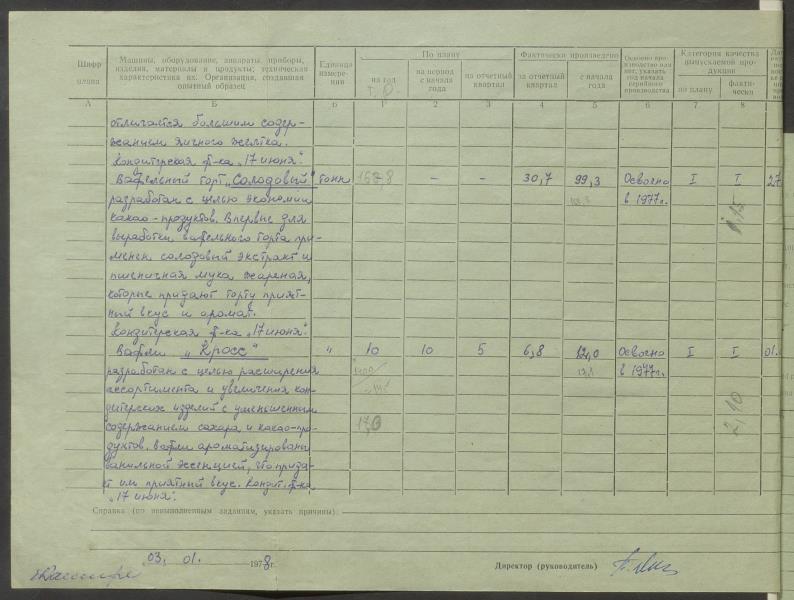 Шифр плана
Машины, оборудование, аппараты, приборы, изделия, материалы и продукты; техническая характеристика их. Организация, создавшая опытный образец
Единица измерения
По плану
на год
на период с начала года
на отчетный квартал
Фактически произведено
за отчетный квартал
с начала года
год начала серийной производства
Категория качества выпускаемой продукции
по плану
фактически
А Б В 1 2 3 4 5 6 7 8
отличается большим содер-
жанием яичного желтка.
Кондитерская ф-ка „17 июня".
Вафельный торт „Солодовый" тонн – – 30,7 99,3 Освоено I I 27
разработан с целью экономии в 1977г.
какао-продуктов. Впервые для
выработки вафельного торта при-
менен солодовый экстракт и
пшеничная мука жареная,
которые придают торту прият-
ный вкус и аромат.
Кондитерская ф-ка „17 июня".
Вафли „Кросс" " 10 10 5 6,8 12,0 Освоено I I 01.
разработан с целью расширения в 1977г.
ассортимента и увеличения кон-
дитерских изделий с уменьшенным
содержанием сахара и какао-про-
дуктов. Вафли ароматизированы
ванильной эссенцией, что прида-
ет им приятный вкус. Кондит. ф-ка
„17 июня".
Справка (по невыполненным заданиям, указать причины):
03. 01. 1978г.
Директор (руководитель)